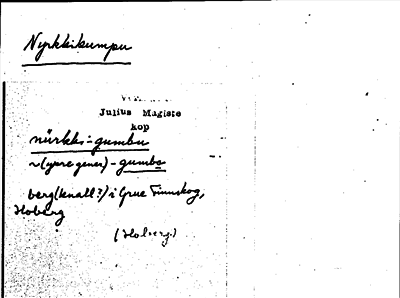 Nyrkkikumpu
Julius Mägiste
kop
nürkki-gumbu
~ (yere gener) - gumba
berg (knall?) i Grue Finnskog,
Hoberg
(Hoberg.)